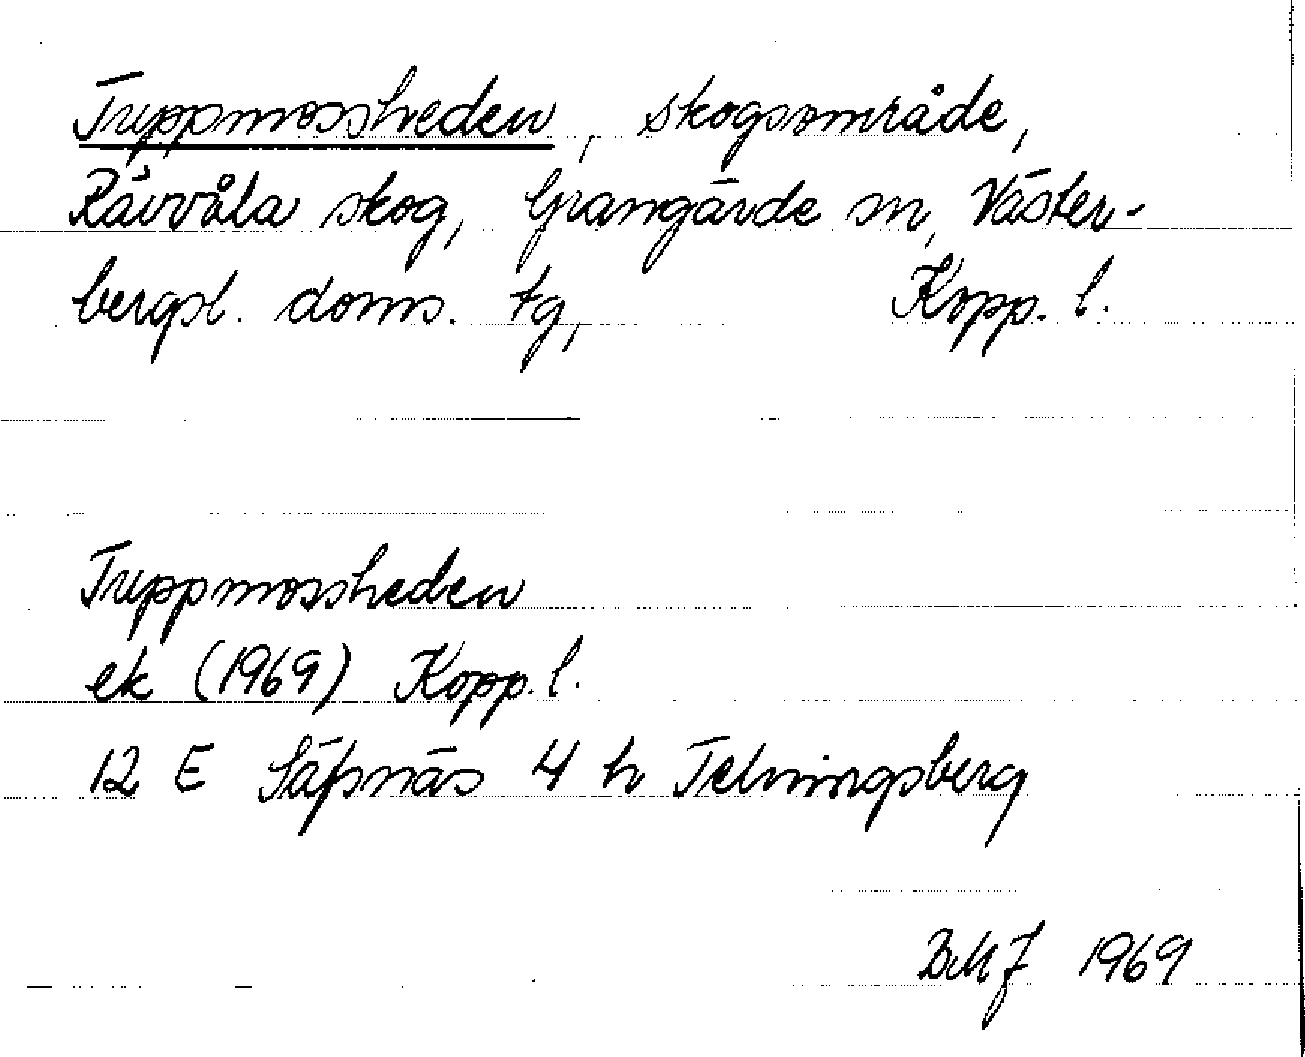 Treppmossheden, skogsområde,
Rävvåla skog, Grangärde sn, Väster-
bergsl. doms. tg, Kopp. l.
Treppmossheden
ek (1969) Kopp. l.
12 E Säfsnäs 4 h Telningsberg
BMJ 1969